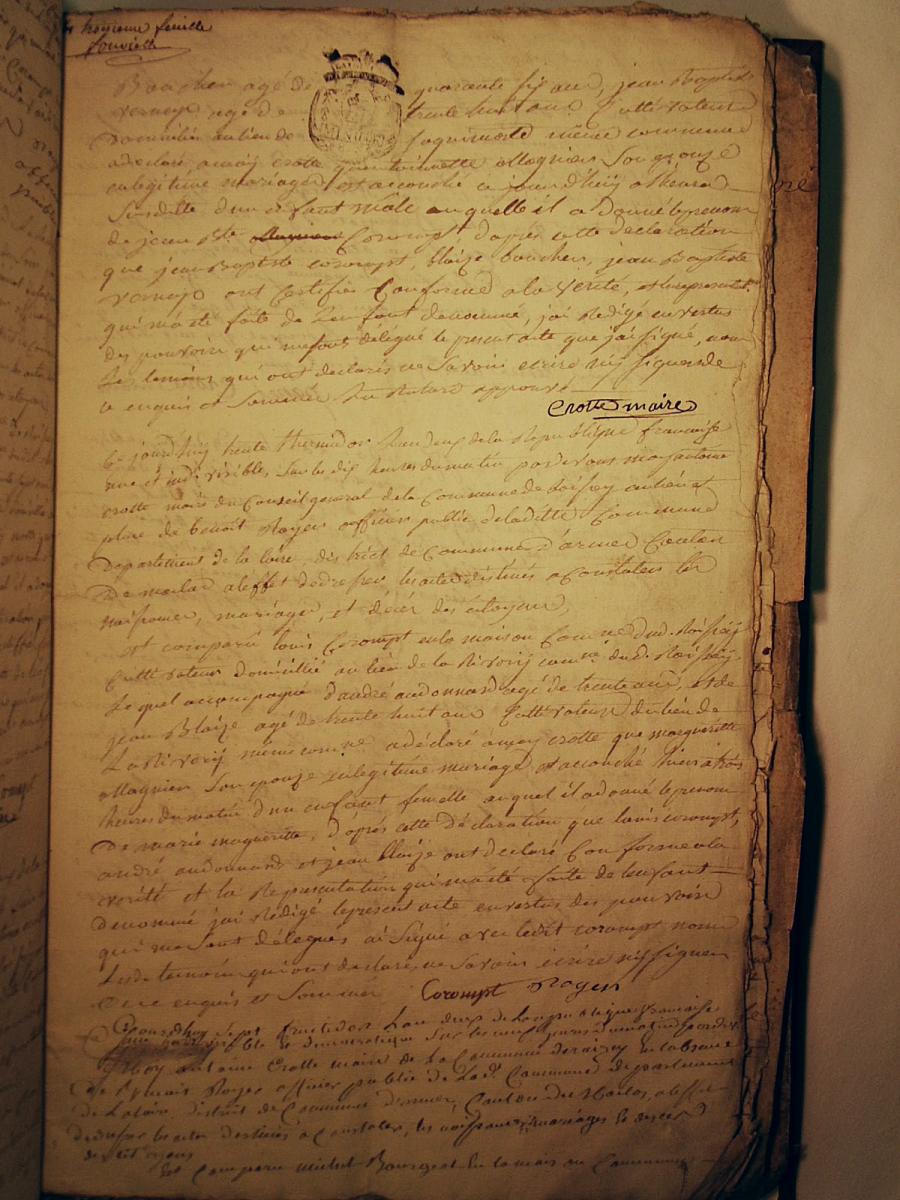 troisieme feuille
Bouchen agé de quarante six ans, jean Baptiste
verneys agé de trente huit ans Cultivateurs
Domicilié au lieu de même commune
a declaré a moy crotte que toinnette Magnien Son epouze
en legitime mariage est accouché ce jourdhuy a lheure
Susditte d'un enfant Male auquelle il a Donné le prenom
de jean Bte Corompt d'apres cette declaration
que jean Baptiste corompt, blaize bouchen, jean Baptiste
verneys ont Certifiés Conforme a la verité, et la representation
qui m'a eté faite de L'enfant denommé, j'ai Redigé en vertus
des pouvoirs qui me sont délégué le present acte que j'ai signé, non
Les temoins qui ont declarés ne Savoir ecrire ni signer de
ce enquis et Sommés
Crotte maire
Ce jourdhuy trente thermidor L'an deux de la Republique francaise
une et indivisible, Sur les dix heures du matin pardevant moy antoine
crotte maire du Conseil general de la Commune de Roisey au lieu et
place de benoit Royer officier public de laditte Commune
Departement de la loire, district de Commune d'armes Canton
De maclas a leffet de dresser les actes destinés a Constater les
naissances, mariages, et décés des citoyens
est comparu louis Corompt en la maison Commune dud. Roisey
Cultivateur domicillié au lieu de la Rivory comne dud. Roisey
Le quel accompagné d'andré audonnard agé de trente ans, et de
jean Blaize agé de trente huit ans Cultivateurs du lieu de
La Rivory même comne a déclaré a moy crotte que margueritte
Magnien Son epouze en legitime mariage est accouché hier a trois
heures du matin d'un enfant femelle auquel il a donné le prenom
De marie marguerite, d'après cette déclaration que louis corompt,
andré audonnard et jean blaize ont declaré Conforme a la
verité et la Representation qui m'a eté faite de lenfant
denommé j'ai Rédigé le present acte en vertus des pouvoirs
qui me sont délegués ai Signé avec ledit corompt non
Lesd temoins qui ont declarés ne Savoir écrire ni signer
De ce enquis et Sommer Corompt Royer
Cejourdhuy sept fructidor L'an deux de la republique francaise
une indivisible et democratique Sur les neuf heures du matin pardevant
Moy antoine Crotte maire de La Commune de roizey en labsance
de benoit Royer officier public de Lad. Commune departement
de La loire district de Commune d'armes, Canton de Maclas, a leffet
de dresser les actes destinés a Constater, les naissances mariages et deces
des citoyens
Est Comparu michel Bourgeat en la maison Commune